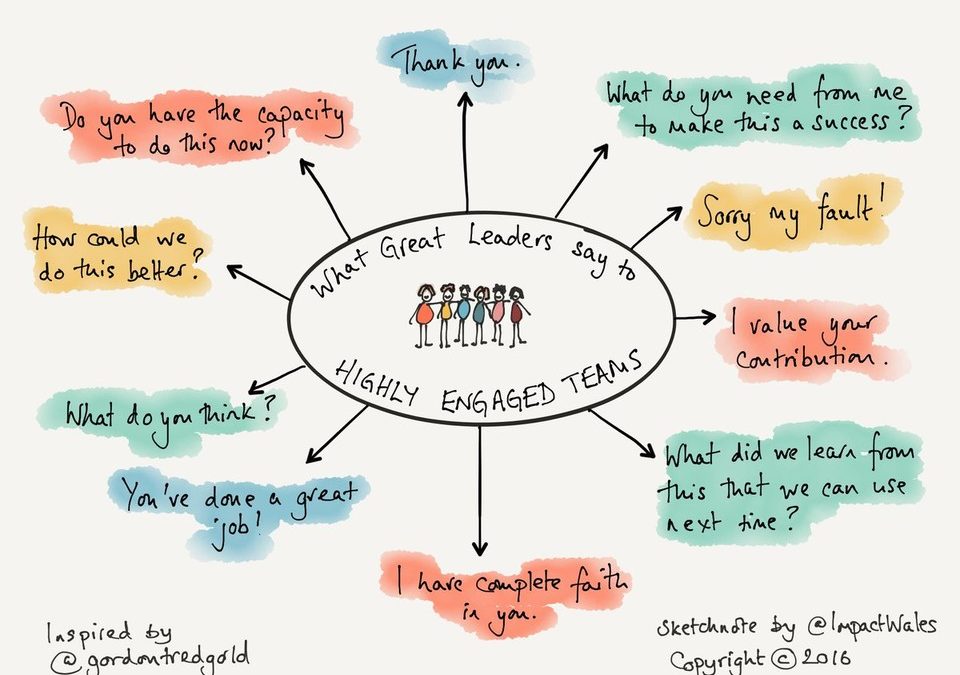 Thank you.
Do you have the capacity
to do this now?
What do you need from me
to make this a success?
Sorry my fault!
How could we
do this better?
What Great Leaders say to
HIGHLY ENGAGED TEAMS
I value your
contribution.
What do you think?
What did we learn from
this that we can use
next time?
You've done a great
job!
I have complete faith
in you.
Inspired by
@gordontredgold
Sketchnote by @ImpactWales
Copyright © 2016